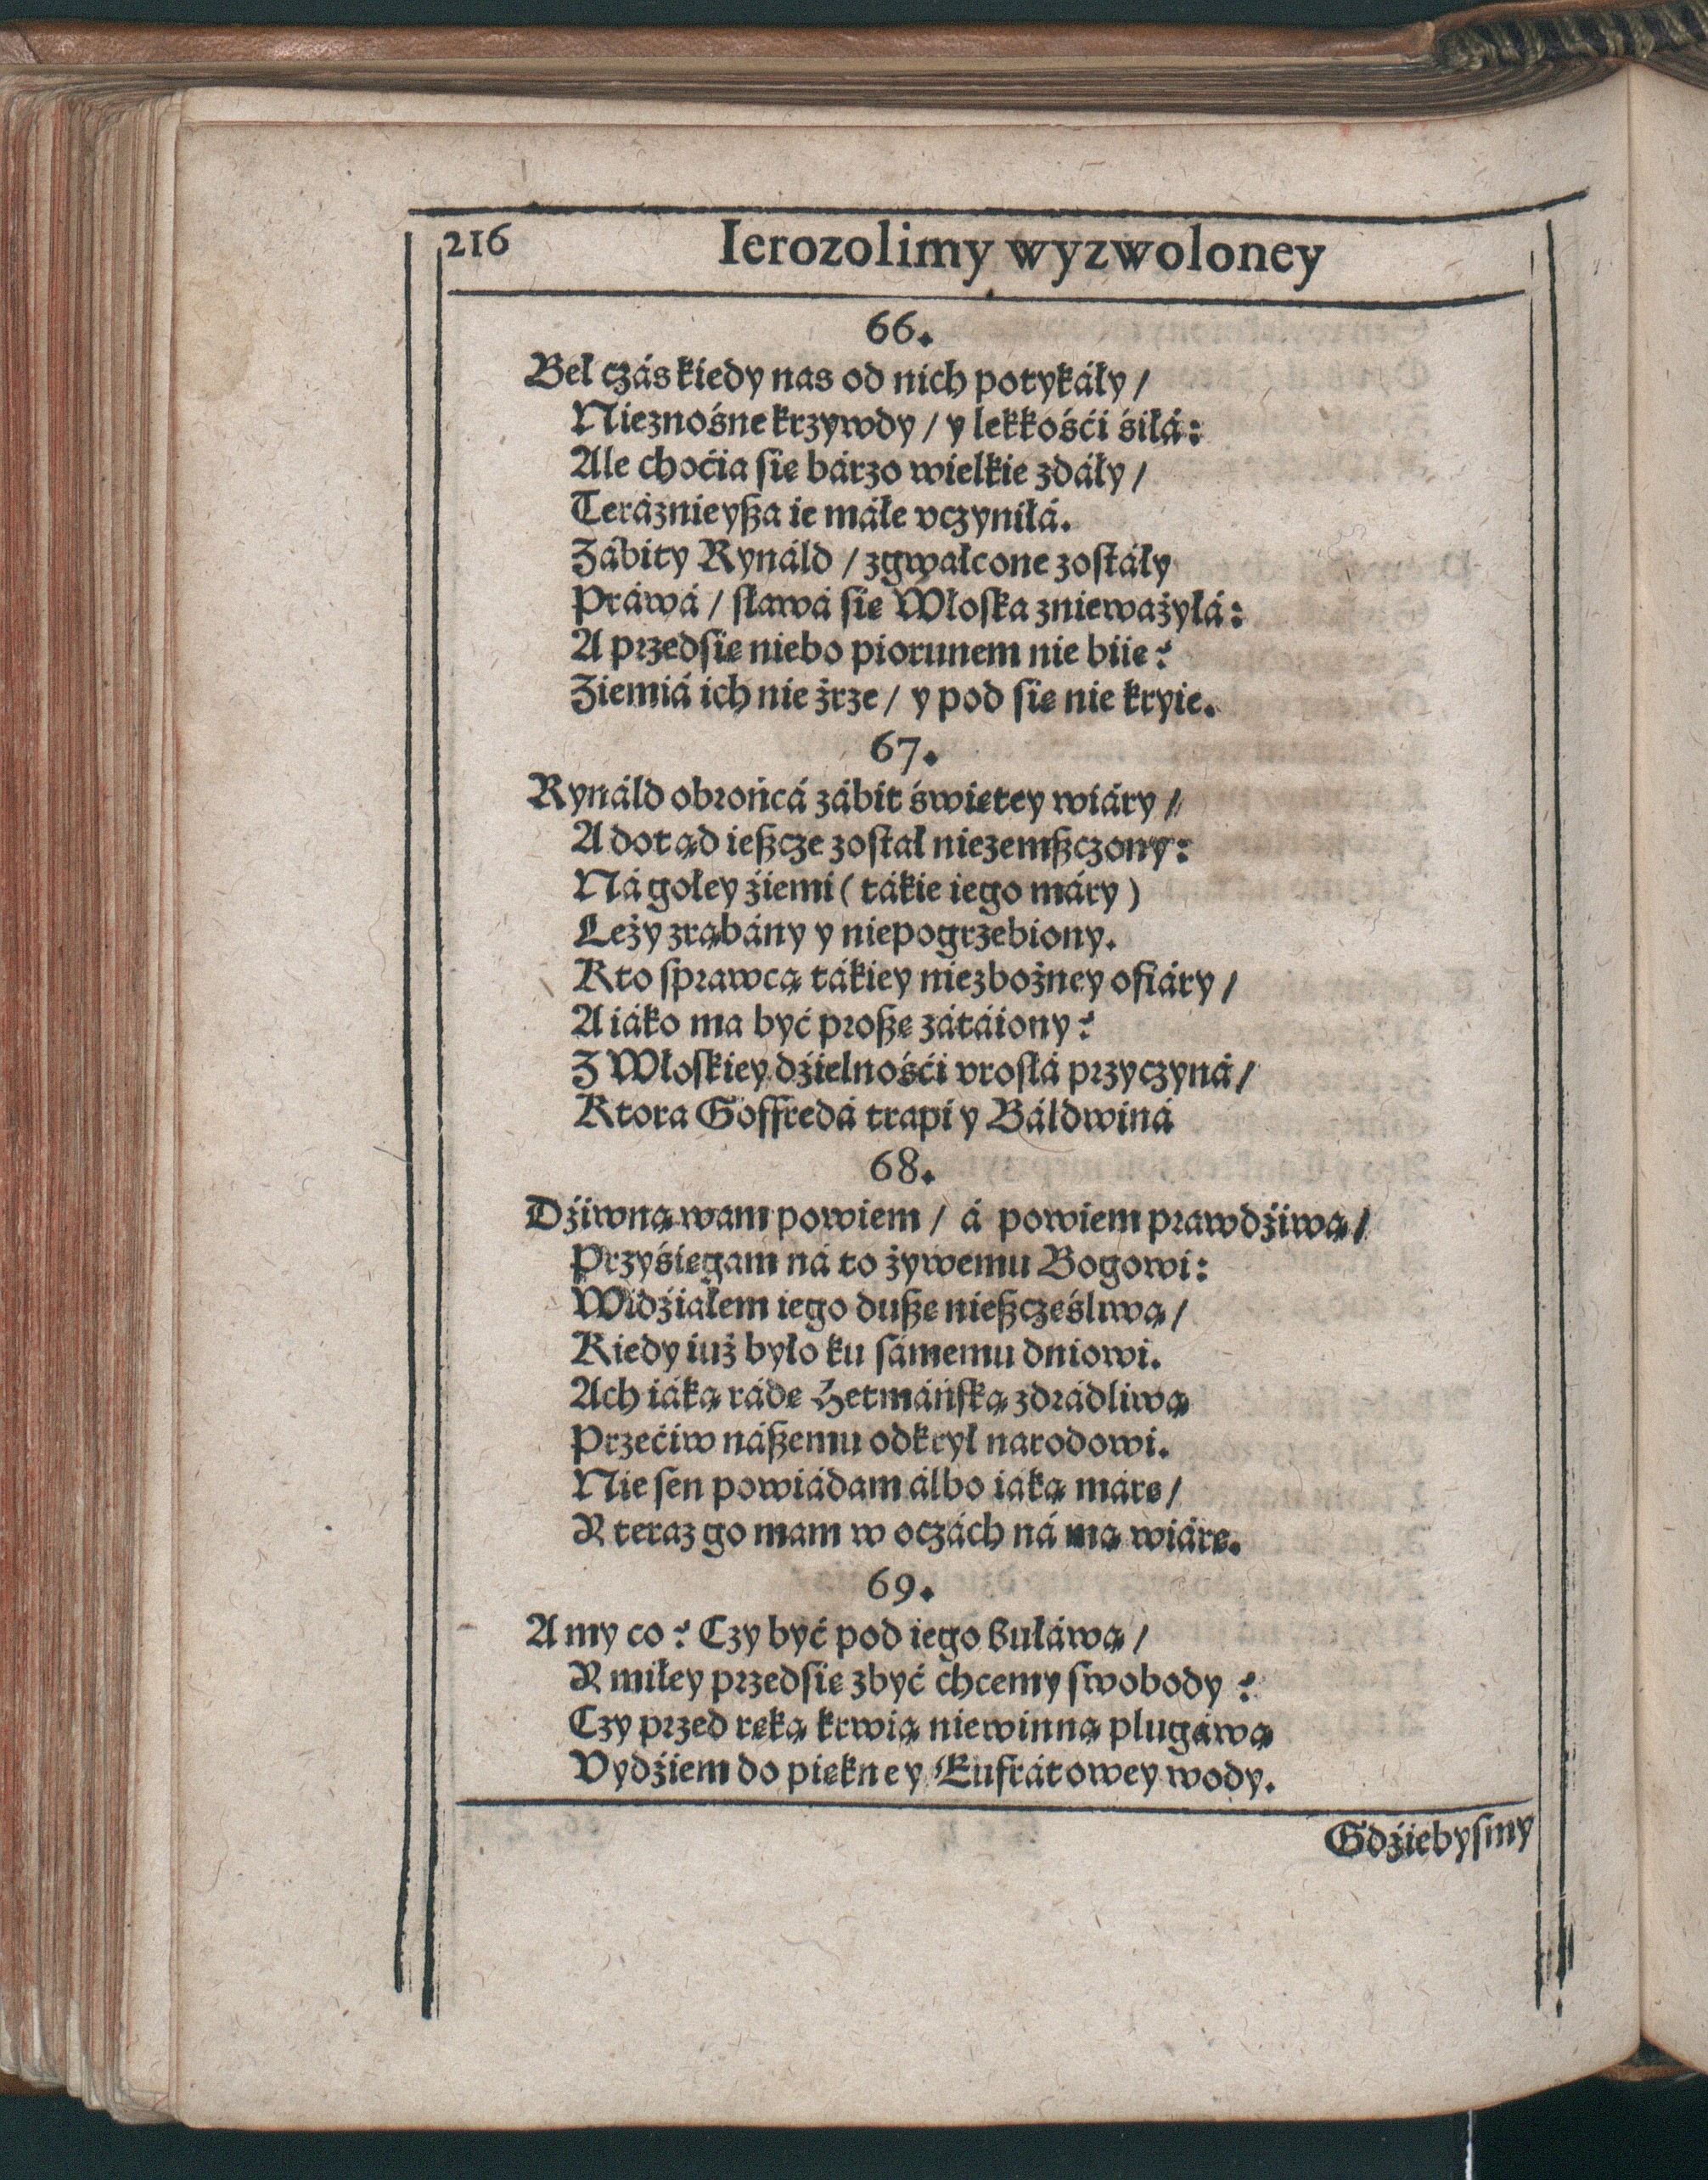 216 Ierozolimy wyzwoloney
66.
Beł czás kiedy nas od nich potykáły /
Nieznośne krzywdy / y lekkośći śiłá:
Ale choćia się bárzo wielkie zdáły /
Teráznieyßa ie máłe vczyniłá.
Zábity Rynáld / zgwałcone zoſtáły
Práwá / ſławá się Włoſka znieważyłá:
A przedſię niebo piorunem nie biie?
Ziemiá ich nie żrze / y pod ſię nie kryie.
67.
Rynáld obrońcá zábit świętey wiáry /
A dotąd ießcze zoſtał niezemßczony:
Ná gołey źiemi ( tákie iego máry )
Leży zrąbány y niepogrzebiony.
Kto ſprawcą tákiey niezbożney ofiáry /
A iáko ma być proßę zátáiony?
Z Włoſkiey dźielnośći vroſłá przyczyná /
Ktora Goffredá trapi y Báldwiná
68.
Dźiwną wam powiem / á powiem prawdźiwą /
Przyśięgam ná to żywemu Bogowi:
Widźiałem iego dußę nießczęśliwą /
Kiedy iuż było ku ſámemu dniowi.
Ach iáką rádę Hetmáńſką zdrádliwą
Przećiw náßemu odkrył narodowi.
Nie ſen powiádam álbo iáką márę /
R teraz go mam w oczách ná mą wiárę.
69.
A my co? Czy być pod iego Buławą /
R miłey przedſię zbyć chcemy ſwobody?
Czy przed ręką krwią niewinną plugáwą
Vydźiem do piękney Eufrátowey wody.
Gdźiebyſmy